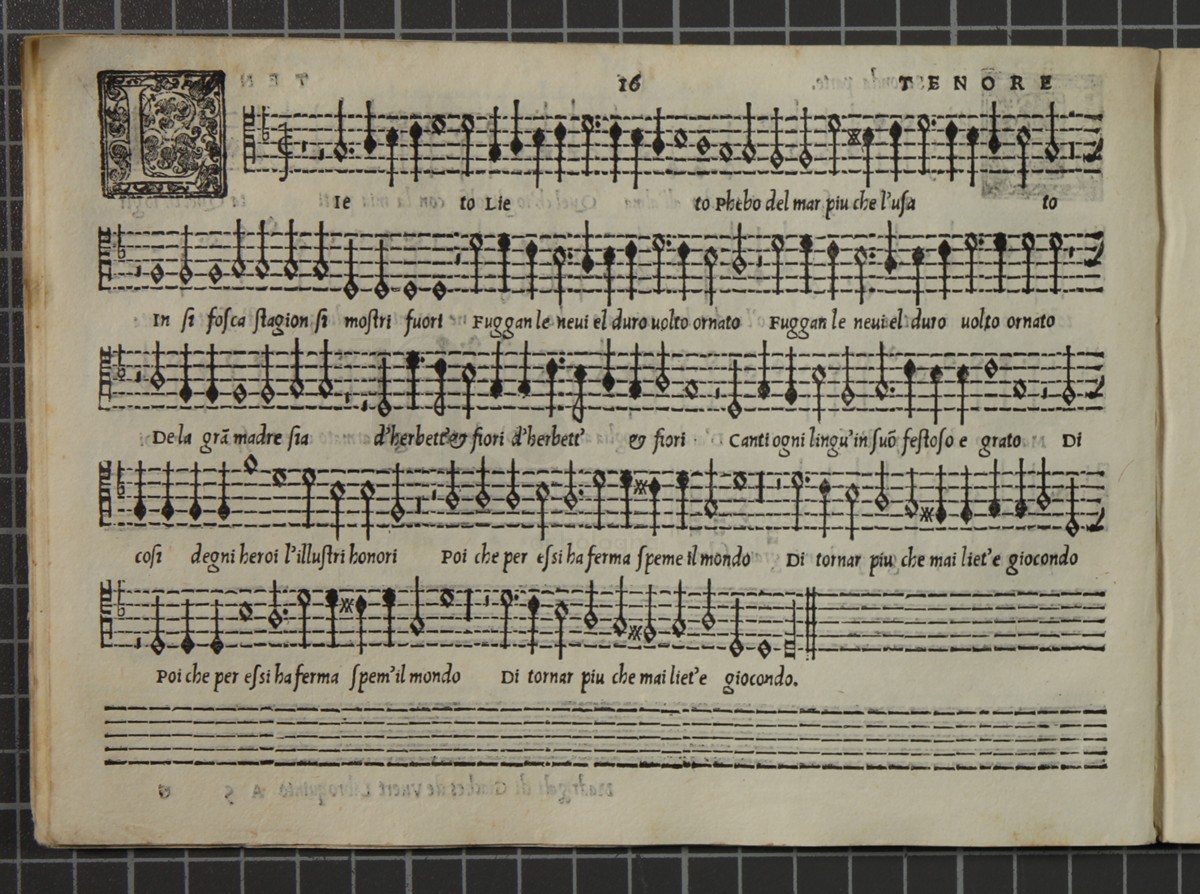 16 TENORE
L Ie to Lie to Phebo del mar piu che l'usa to
In si fosca stagion si mostri fuori Fuggan le neui el duro uolto ornato Fuggan le neui el duro uolto ornato
De la grã madre sia d'herbett' & fiori d'herbett' & fiori Canti ogni lingu' in suõ festoso e grato Di
cosi degni heroi l'illustri honori Poi che per essi ha ferma speme il mondo Di tornar piu che mai liet' e giocondo
Poi che per essi ha ferma spem' il mondo Di tornar piu che mai liet' e giocondo.
Madrigali di Giaches de Vuert Libro quinto A 5